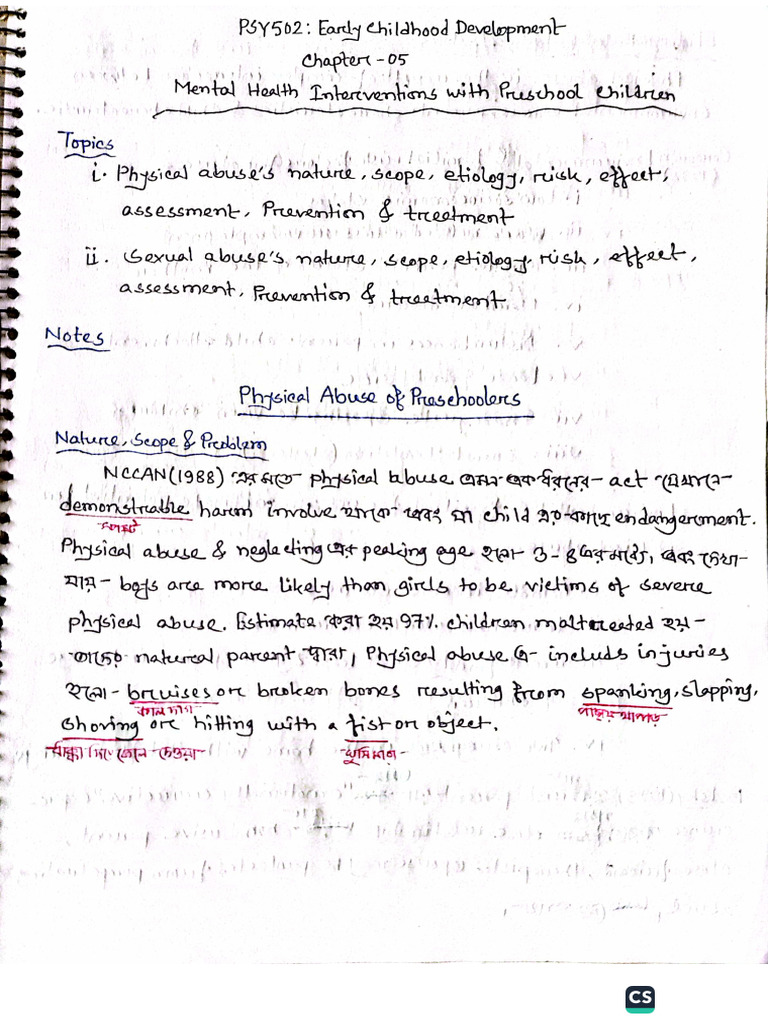 PSY502: Early Childhood Development
Chapter -05
Mental Health Interventions with Preschool Children
Topics
i. Physical abuse's nature, scope, etiology, risk, effect,
assessment, Prevention & treatment
ii. Sexual abuse's, nature, scope, etiology, risk, effect,
assessment, Prevention & treatment
Notes
Physical Abuse of Preschoolers
Nature, Scope & Problem
NCCAN(1988) এর মতে physical abuse এমন এক ধরনের act যেখানে
demonstrable harm involve থাকে এবং যা child এর কাছে endangerment.
স্পষ্ট
Physical abuse & neglecting এর peaking age হলো ৩-৪ এর মধ্যে, এবং দেখা
যায় - boys are more likely than girls to be victims of severe
physical abuse. Estimate করা হয় 97% children maltreated হয়
তাদের natural parent দ্বারা, Physical abuse এ include injuries
হলো - bruises or broken bones resulting from spanking, slapping,
shoving or hitting with a fist or object.
ধাক্কা দিয়ে ফেলে দেওয়া